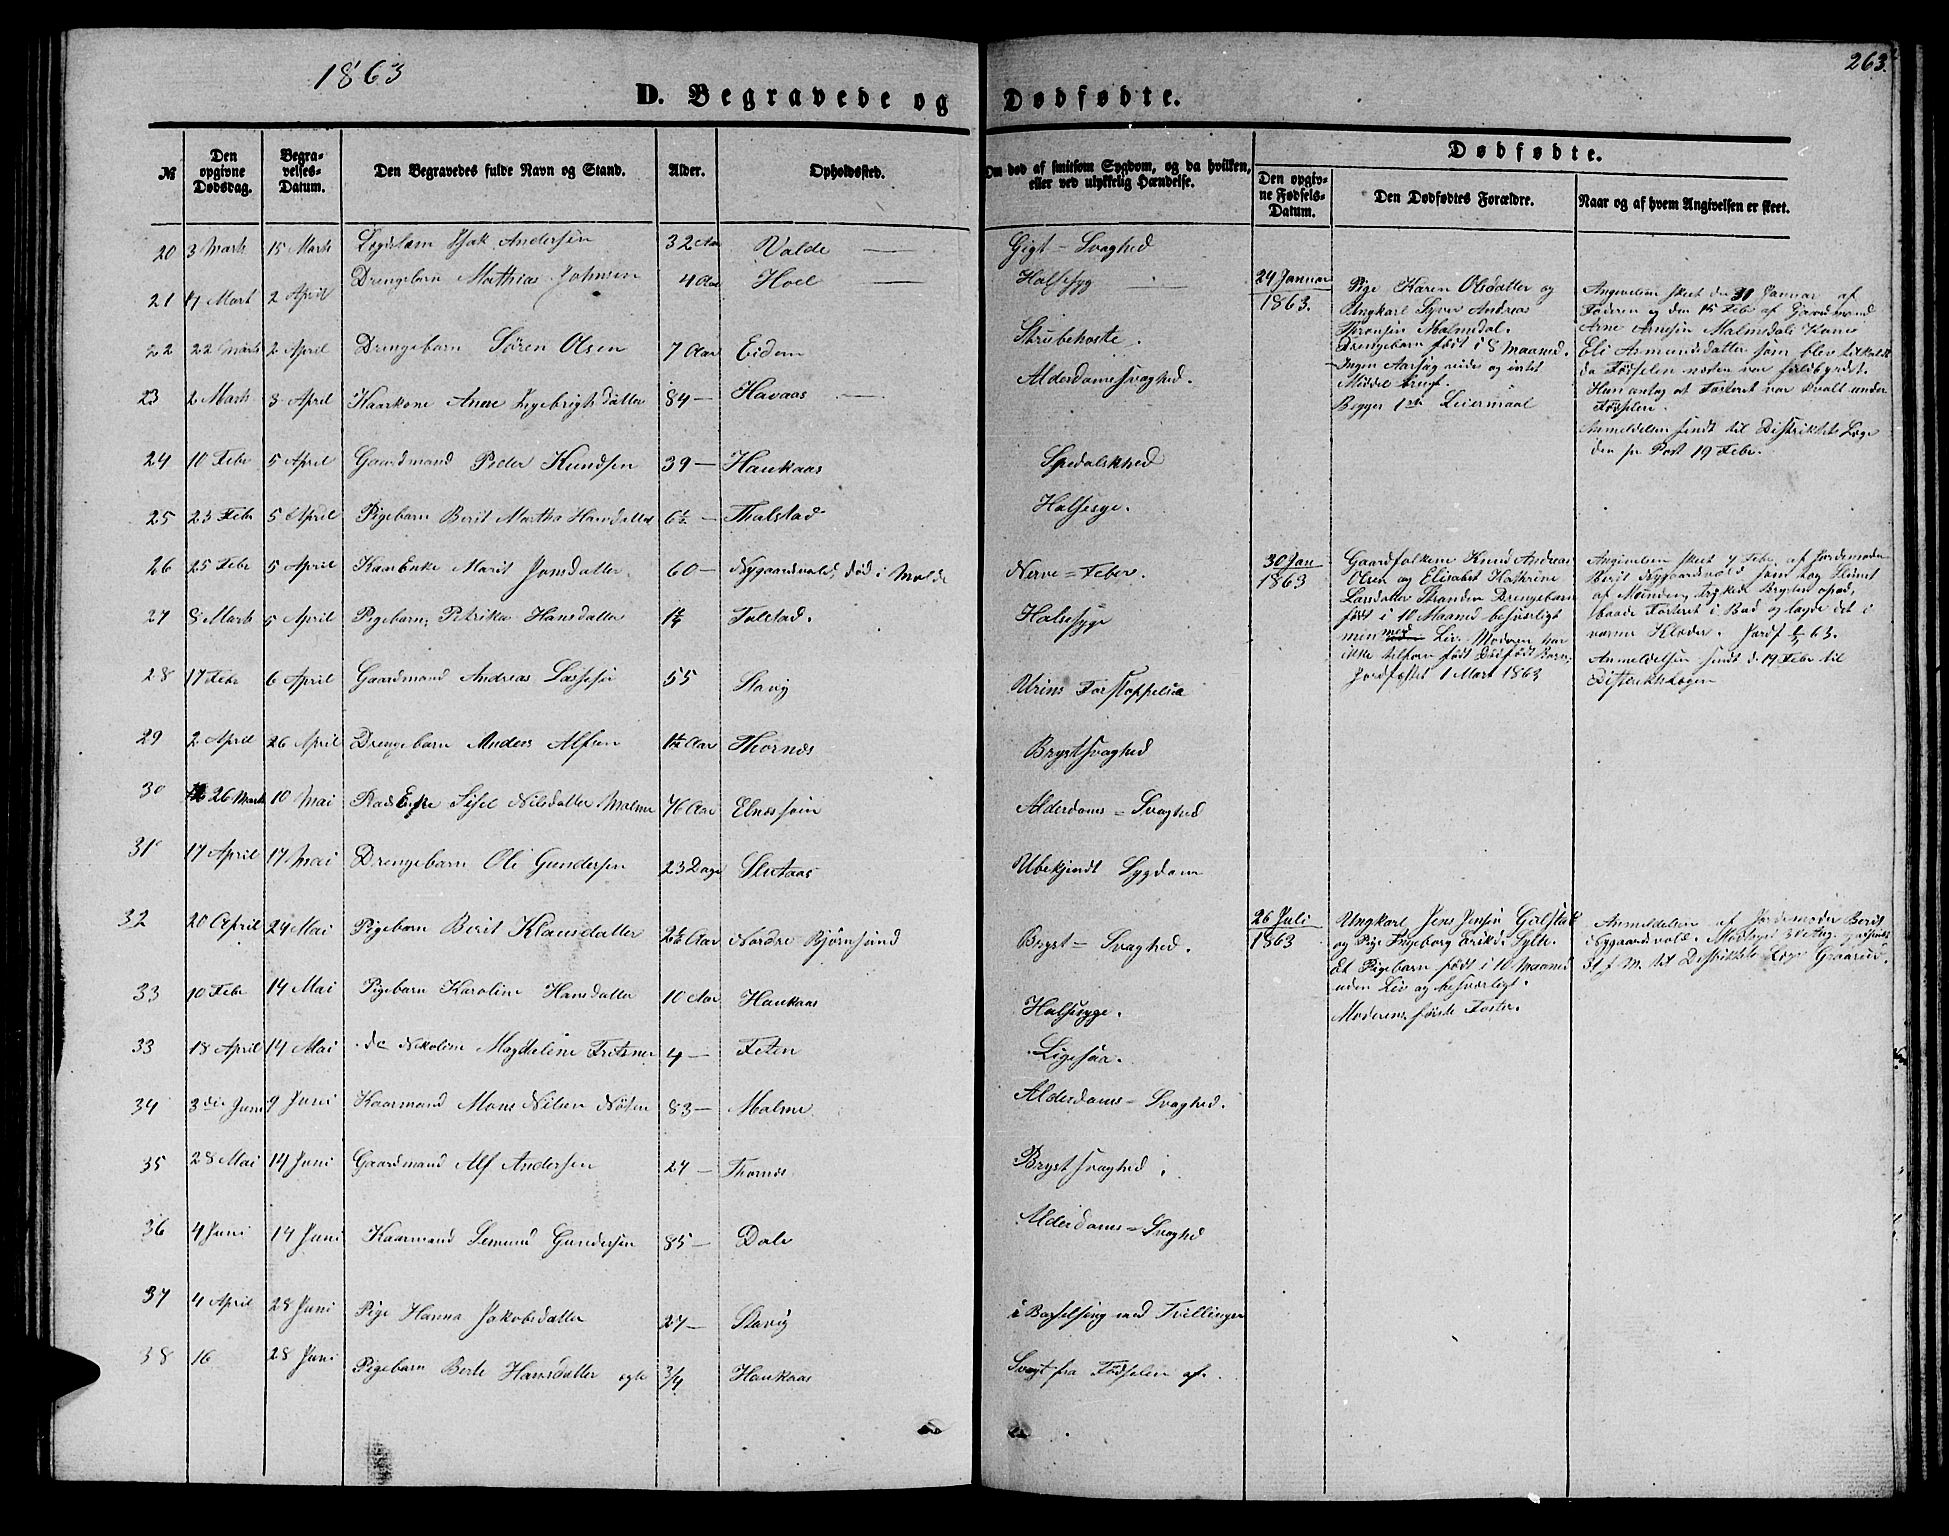 1863
263.
D. Begravede og Dødfødte.
№
Den opgivne Dødsdag.
Begravelses-Datum.
Den Begravedes fulde Navn og Stand.
Alder.
Opholdssted.
Om død af smitsom Sygdom, og da hvilken, eller ved ulykkelig Hændelse.
Dødfødte.
Den opgivne Fødsels-Datum.
Den Dødfødtes Forældre.
Naar og af hvem Angivelsen er skeet.
20 3 Marts 15 Marts Isak Andersen 32 Aar Valde — Gigt - Svaghed
21 7 Mart 2 April Drengebarn Mathias Johnsen 4 Aar Hoel — Halssyg —
22 22 Marts 2 April Drengebarn Søren Olsen 7 Aar Eidem Strubehoste.
23 2 Marts 3 April Kaarkone Anne Ingebrigtsdatter 84 — Havaas — Alderdomssvaghed.
24 10 Febr 5 April Gaardmand Peder Knudsen 39 — Haukaas Spedalskhed
25 23 Febr 5 April Pigebarn Berit Martha Hansdatter 6½ — Thalstad Halsesyge.
26 25 Febr 5 April Kaarenke Marit Jonsdatter. 60 — Nygaardsvold, død i Molde Nerve = Feber.
27 8 Marts 5 April Pigebarn Petrikka Hansdatter Talstad. Halsesyge
28 17 Febr 6 April Gaardmand Andreas Lassesen 55 Stavig Urins Forstoppelse
29 2 April 26 April Drengebarn Anders Alfsen Aar Thornes Brystsvaghed
30 26 Marts 10 Mai Sisel Nilsdatter Malme 76 Aar Elnæssøin Alderdoms = Svaghed
31 17 April 17 Mai Drengebarn Oli Gundersen 23 Dage Slutaas Ubekjendt Sygdom
32 20 April 24 Mai Pigebarn Berit Klausdatter Aar Nordre Bjørnsund Bryst = Svaghed.
33 10 Febr 14 Mai Pigebarn Karoline Hansdatter 10 Aar Haukaas Halsesyge.
33 18 April 14 Mai do Nikoline Magdeline Fritsner 4 — Feten Ligesaa.
34 3die Juni 9 Juni Kaarmand Mons Nilsen Nøsen 83 — Malme Alderdoms = Svaghed.
35 28 Mai 14 Juni Gaardmand Alf Andersen 27 — Thornes Brystsvaghed
36 4 Juni 14 Juni Kaarmand Semund Gundersen 85 — Dale Alderdoms = Svaghed
37 4 April 28 Juni Pige Hanna Jakobsdatter 27 — Stavig i Barselseng med Tvillinger
38 16 28 Juni Pigebarn Berte Hansdatter ogte 3/4 Haukaas Svagt fra Fødselen af.
24 Januar 1863.
Pige Karen Olsdatter og
Ungkarl Syver Andreas
Malmedal.
Drengebarn født i 8 Maaned.
Ingen Aarsag vides og intet
Middel brugt.
Begges 1ste Leiermaal
Angivelsen skeet den 31 Januar af
Faderen og den 15 Febr af Gaardmand
Arne Arnesen Malmedals Kone
Eli Asmundsdatter som blev tilkaldt
da Fødselen næsten var forbigaaet.
Hun antog at Fosteret var kvalt under
Fødselen.
Anmeldelsen sendt til Distrikts Læge
den pr Post 19 Febr.
30 Jan 1863
Gaardfolkene Knud Andreas
Olsen og Elisabet Kathrine
Larsdatter Stranden Drengebarn
født i 10 Maaned besværligt
men med Liv. Moderen har
ikke tilforn født Dødfødt Barn.
Jordfæstet 1 Mart 1863
Angivelsen skeet 7 Febr. af Jordemoder
Berit Nygaardsvold som tog Slimet
af Munden, trykede Brystet opad,
baade Fosteret i Bad og lagde det i
varme Klæder. Jordf 1/3 63.
Anmeldelsen sendt d. 19 Febr til
Distriktslægen
26 Juli 1863
Ungkarl Jens Jensen Gjelstad
og Pige Ingeborg Eriksd. Sylte.
Et Pigebarn født i 10 Maaned
uden Liv og besværligt.
Moderens første Foster.
Anmeldelsen af Jordemoder Berit
Nygaardsvold. Modtaget 30 Aug.
31 s. M. til Distriktets Læge Gaarud.